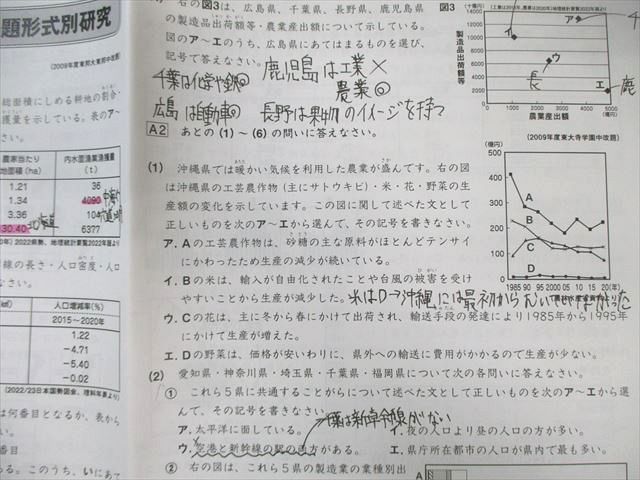 題形式別研究
(2009年度東邦大東邦中改題)
総面積にしめる耕地の割合
獲量を示している。表のア～
農家当たり
地面積(ha)
内水面漁業漁獲量
(t)
1.21
36
1.34
4090
3.36
104
30.40
北海道
6377
2022県勢、地理統計要覧2022年版より
線の長さ・人口密度・人口
人口増減率(%)
2015～2020年
1.22
-4.71
-5.40
-0.02
(2022/23日本国勢図会、理科年表より)
は何番目となるか、表から
る。このうち、いにあて
右の図3は、広島県、千葉県、長野県、鹿児島県
の製造品出荷額等・農業産出額について示している。
図のア～エのうち、広島県にあてはまるものを選び、
記号で答えなさい。
鹿児島は工業×
農業◎
千葉は化学や鉄◎
広島は自動車◎
長野は果物のイメージを持つ
図3
(十億円)
製造品出荷額等
14000
12000
10000
8000
6000
4000
2000
0
ア
イ
ウ
エ
長
鹿
0
1000
2000
3000
4000
5000
(億円)
農業産出額
(2009年度東大寺学園中改題)
A2
あとの(1)～(6)の問いに答えなさい。
(1)
沖縄県では暖かい気候を利用した農業が盛んです。右の図
は沖縄県の工芸農作物(主にサトウキビ)・米・花・野菜の生
産額の変化を示しています。この図に関して述べた文として
正しいものを次のア～エから選んで、その記号を書きなさい。
ア.Aの工芸農作物は、砂糖の主な原料がほとんどテンサイ
にかわったため生産の減少が続いている。
イ.Bの米は、輸入が自由化されたことや台風の被害を受け
やすいことから生産が減少した。
米はD→沖縄には最初からむいていなかった
ウ.Cの花は、主に冬から春にかけて出荷され、輸送手段の発達により1985年から1995年
にかけて生産が増えた。
エ.Dの野菜は、価格が安いわりに、県外への輸送に費用がかかるので生産が少ない。
(億円)
500
400
300
200
100
0
A
B
C
D
1985 90 95 2000 05 10 15 20(年)
(2)
愛知県・神奈川県・埼玉県・千葉県・福岡県について次の各問いに答えなさい。
① これら5県に共通することがらについて述べた文として正しいものを次のア～エから選
んで、その記号を書きなさい。
千葉は新幹線がない
ア.太平洋に面している。
イ.夜の人口より昼の人口の方が多い。
ウ.空港と新幹線の駅の両方がある。
エ.県庁所在都市の人口が県内で最も多い。
② 右の図は、これら5県の製造業の業種別出
A